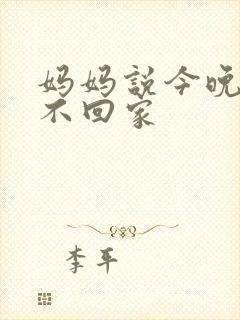 妈妈説今晚
不回家
李平